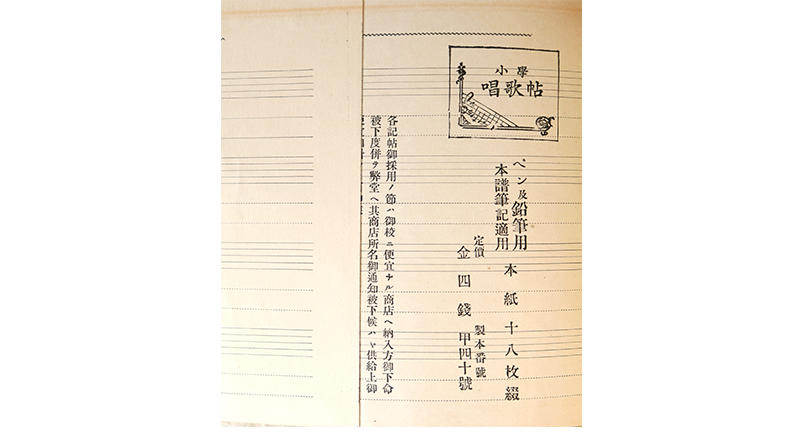 小學
唱歌帖
ペン及鉛筆用 本紙十八枚綴
本譜筆記適用
定價 製本番號
金四錢 甲四十號
各記帖御採用ノ節ハ御校ニ便宜ナル商店ヘ納入方御下命
被下度併ヲ弊堂ヘ其商店所名御通知被下候ハヽ供給上御